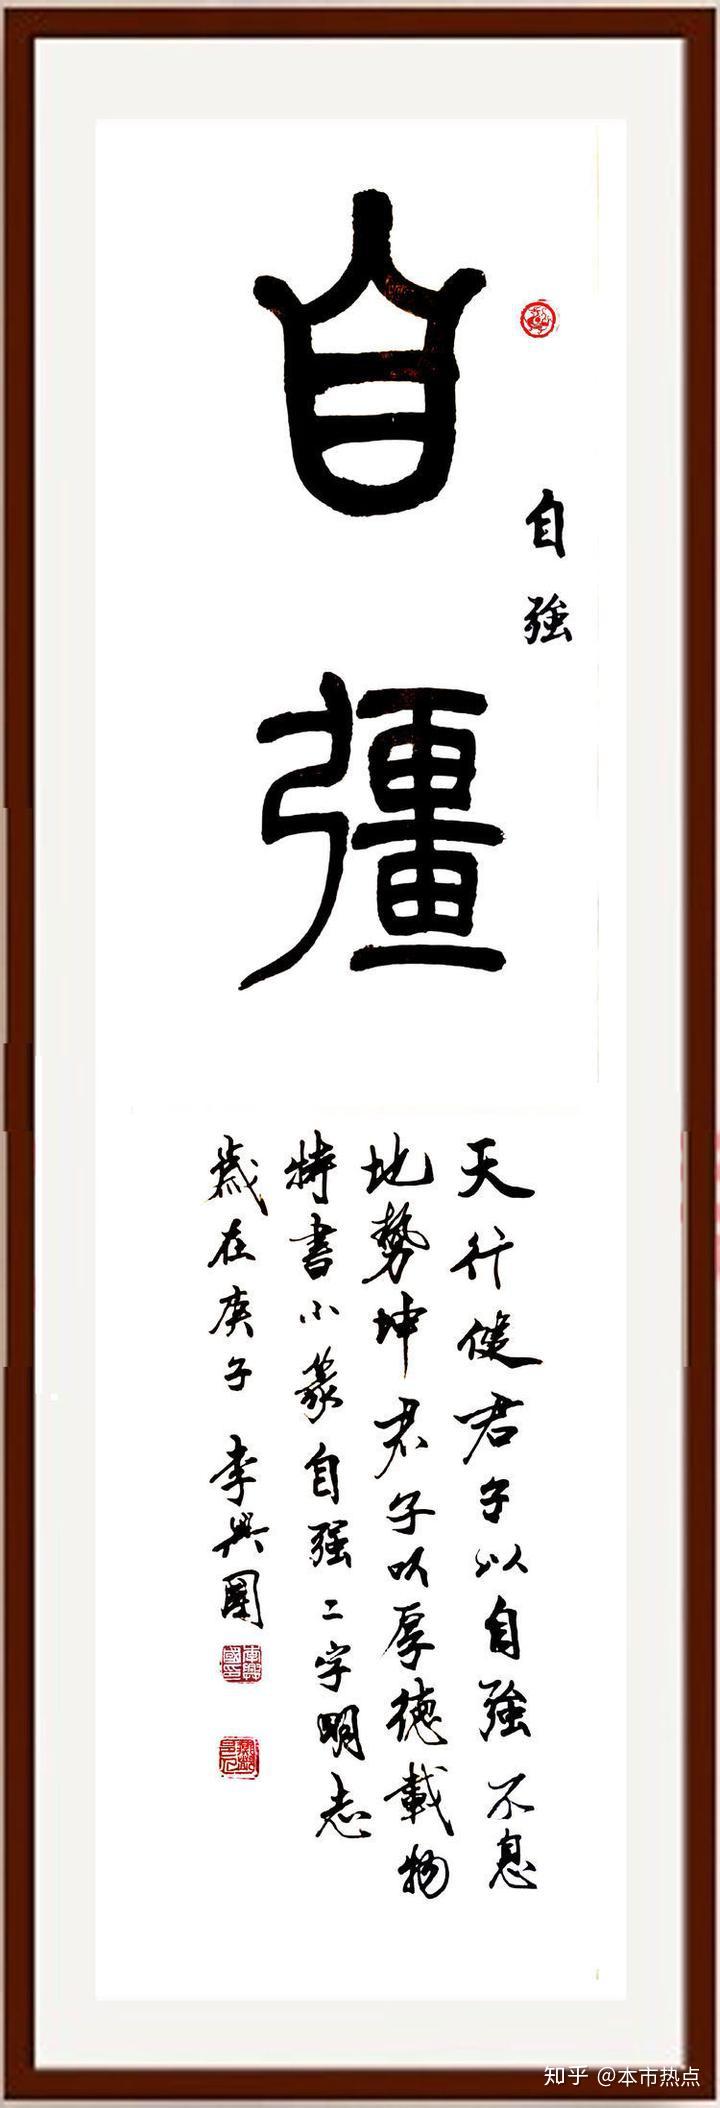 自彊
自強
天行健君子以自強不息
地勢坤君子以厚德載物
特書小篆自强二字明志
歲在庚子 李興國
知乎 @本市热点